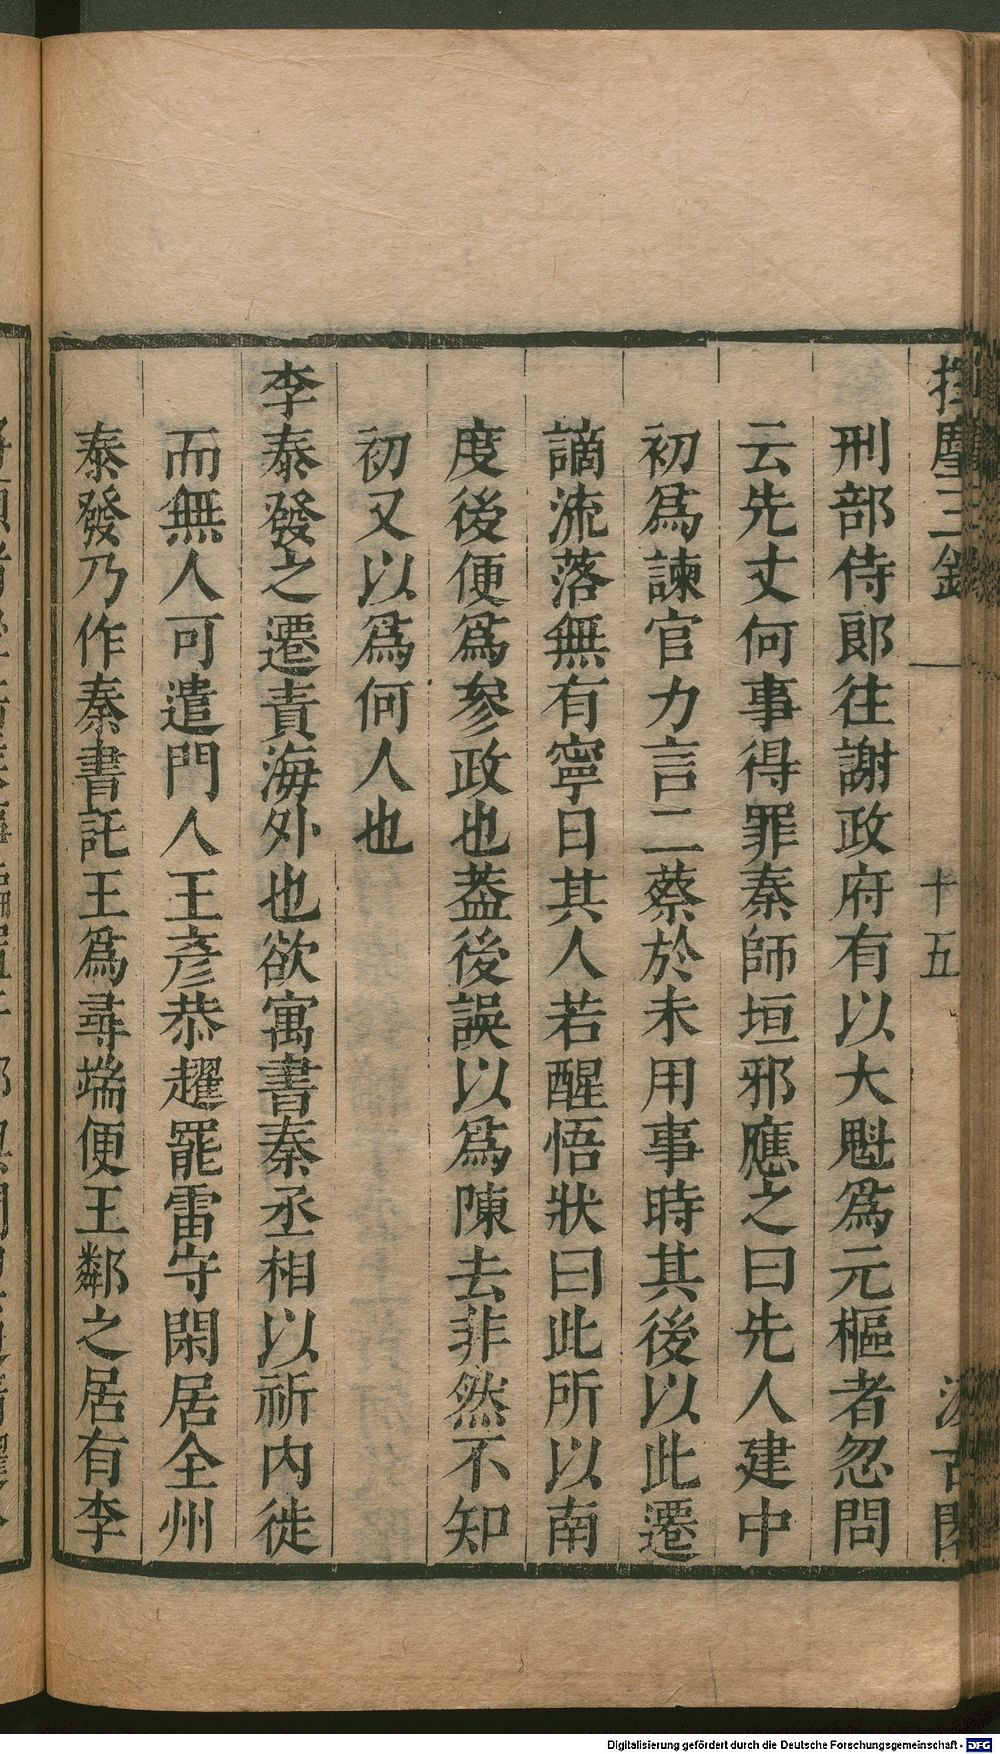 揮麈三錄
十五
汲古閣
刑部侍郎往謝政府有以大魁爲元樞者忽問
云先丈何事得罪秦師垣邪應之曰先人建中
初爲諫官力言二蔡於未用事時其後以此遷
謫流落無有寧日其人若醒悟狀曰此所以南
度後便爲參政也葢後誤以爲陳去非然不知
初又以爲何人也
李泰發之遷責海外也欲寓書秦丞相以祈内徙
而無人可遣門人王彥恭趯罷雷守閑居全州
泰發乃作秦書託王爲尋端便王鄰之居有李
Digitalisierung gefördert durch die Deutsche Forschungsgemeinschaft - DFG